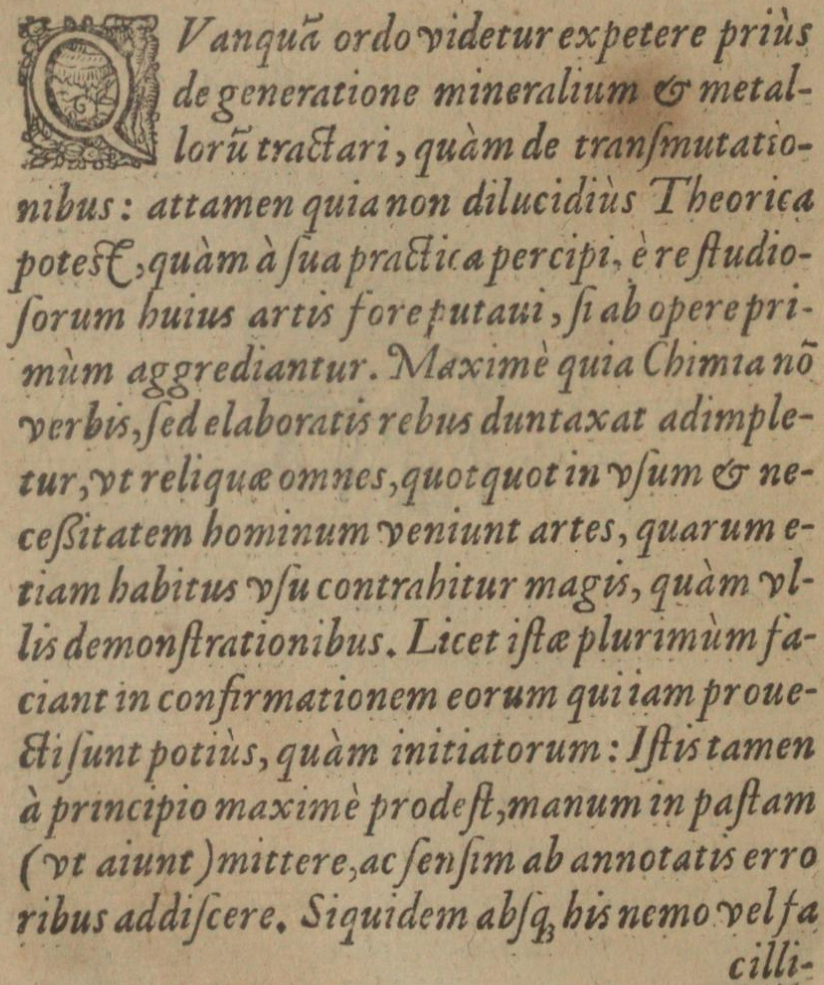 QVanquã ordo videtur expetere priùs
de generatione mineralium & metal-
lorũ tractari, quàm de tranſmutatio-
nibus: attamen quia non dilucidiùs Theorica
potest, quàm à ſua practica percipi, è re ſtudio-
ſorum huius artis fore putaui, ſi ab opere pri-
mùm aggrediantur. Maximè quia Chimia nõ
verbis, ſed elaboratis rebus duntaxat adimple-
tur, vt reliquæ omnes, quotquot in vſum & ne-
ceßitatem hominum veniunt artes, quarum e-
tiam habitus vſu contrahitur magis, quàm vl-
lis demonſtrationibus. Licet iſtæ plurimùm fa-
ciant in confirmationem eorum qui iam proue-
cti ſunt potiùs, quàm initiatorum: Iſtis tamen
à principio maximè prodeſt, manum in paſtam
(vt aiunt) mittere, ac ſenſim ab annotatis erro
ribus addiſcere. Siquidem abſqꝫ his nemo vel fa
cilli-